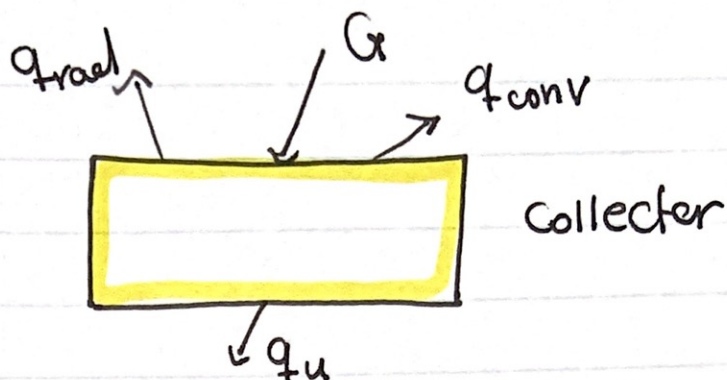 qrad
G
qconv
Collecter
qu